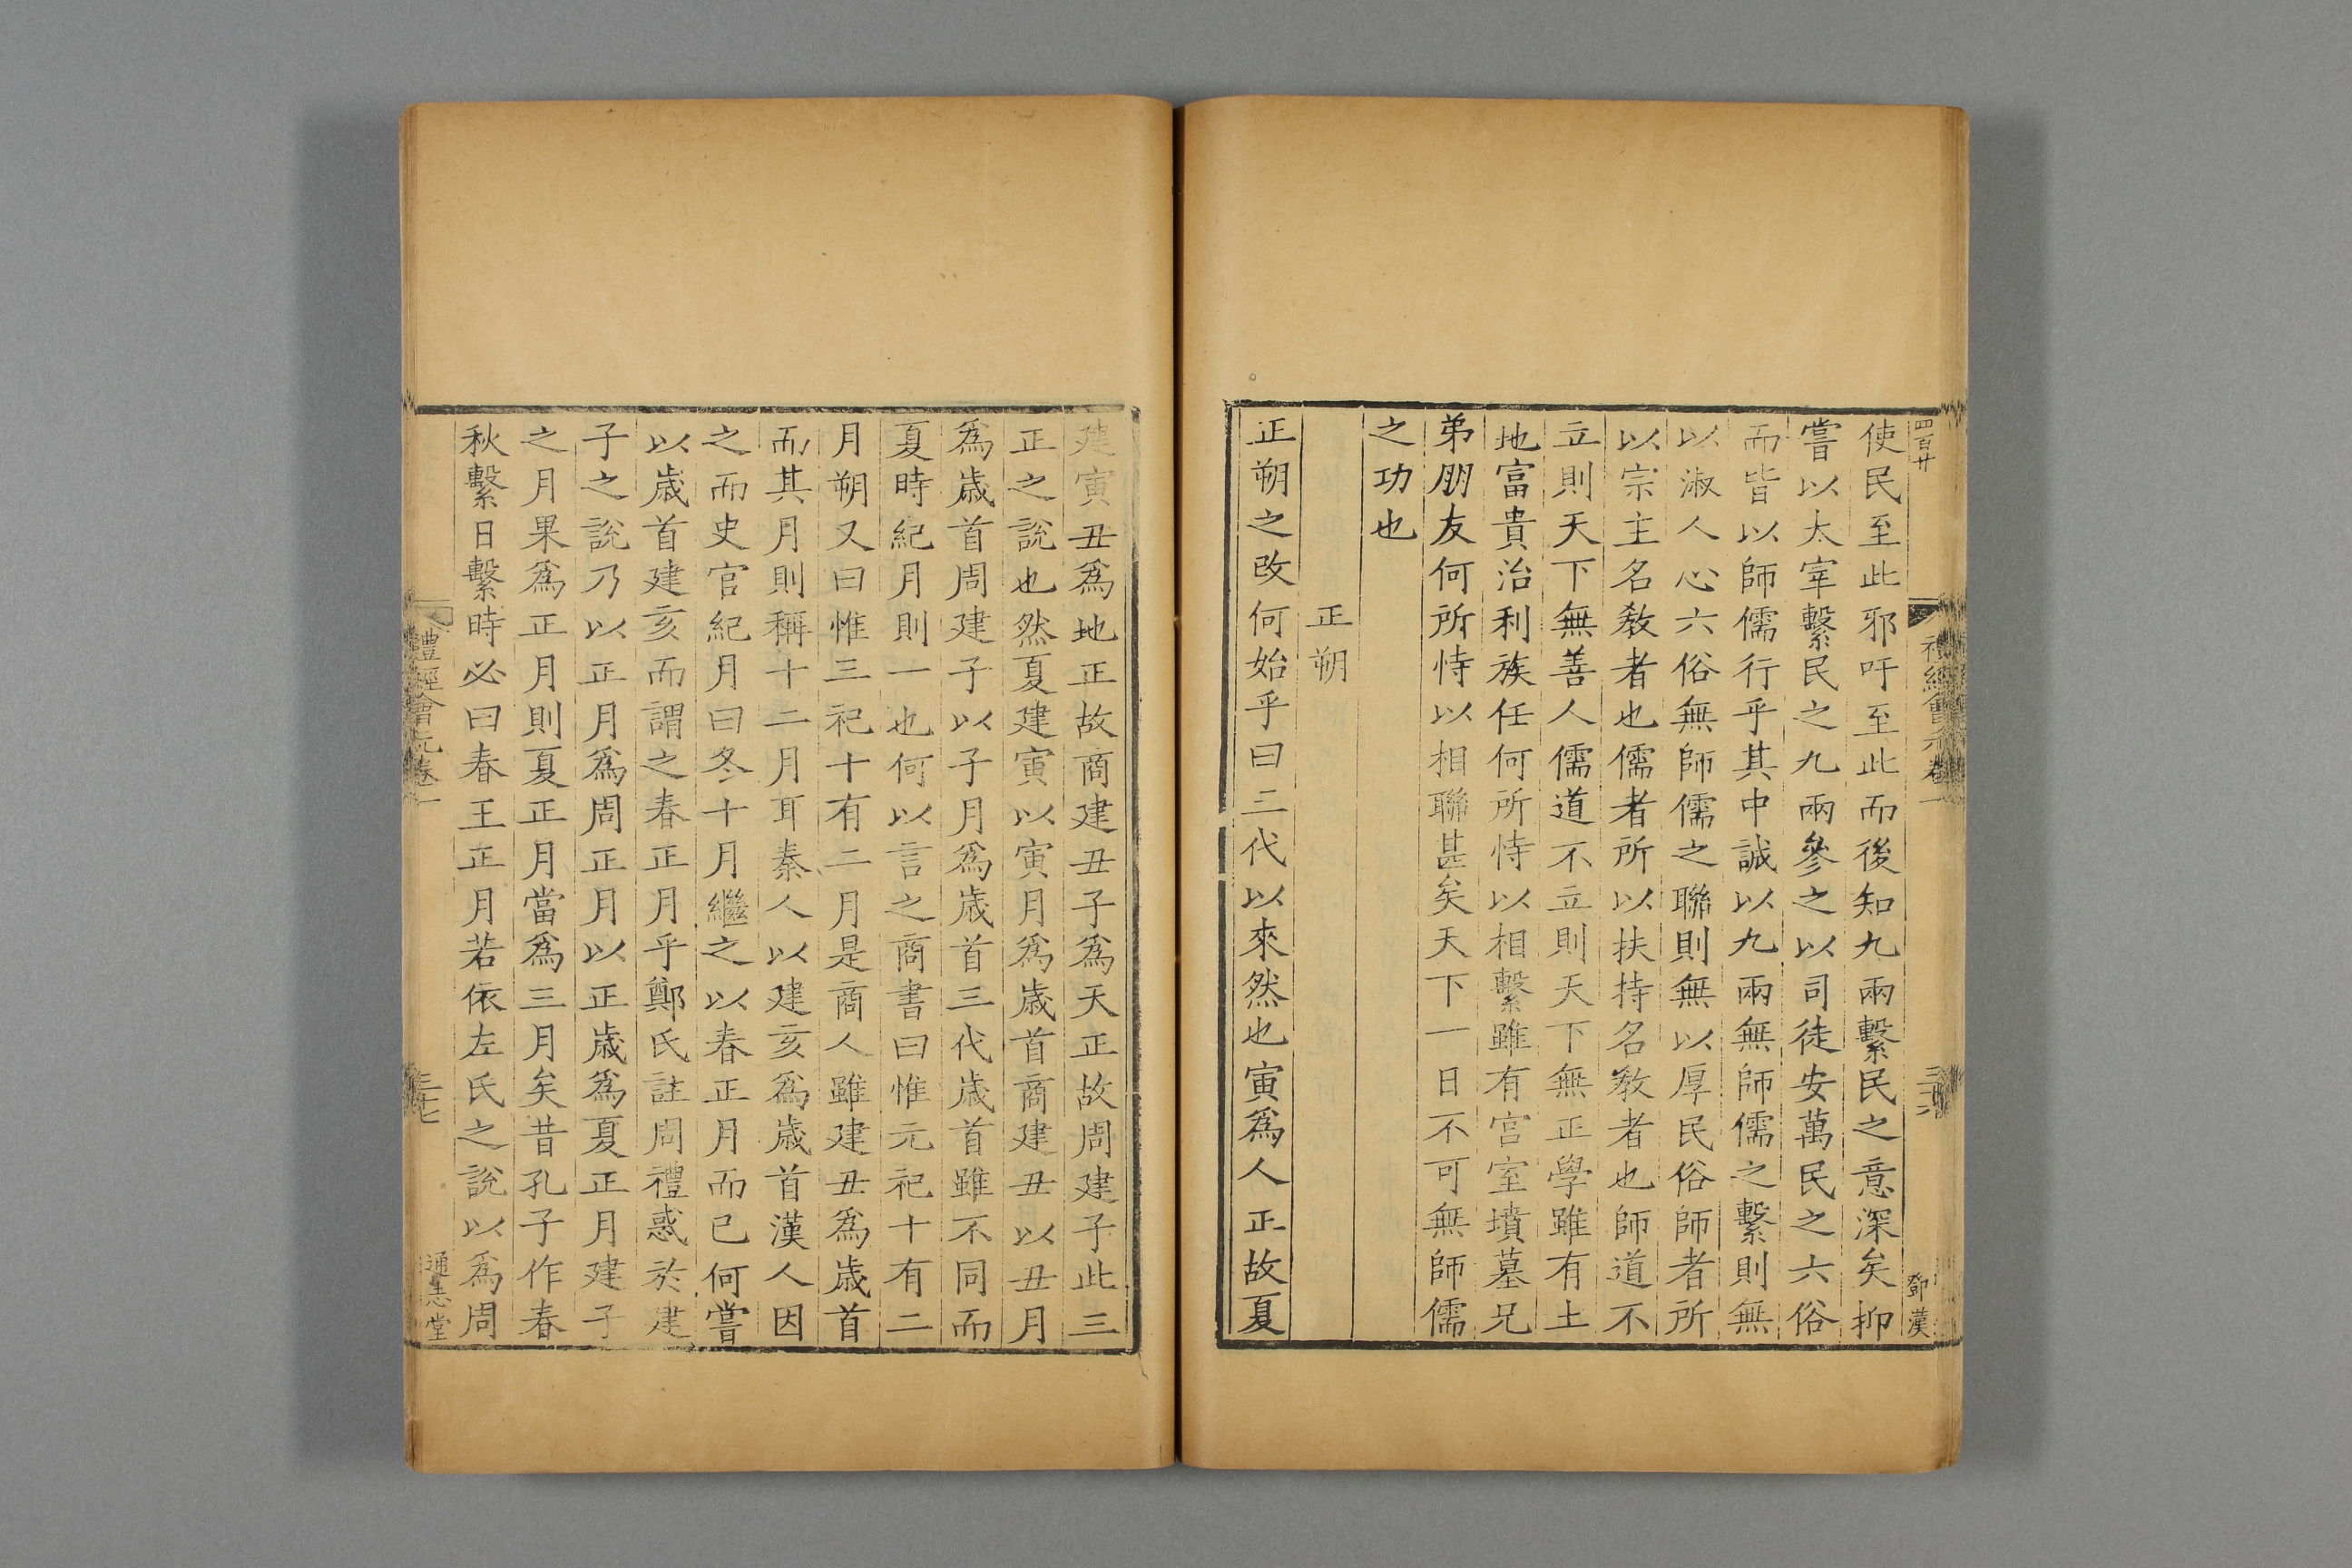 四百廿
禮經會元卷一
三六
鄧漢
使民至此邪吁至此而後知九兩繫民之意深矣抑
嘗以太宰繫民之九兩參之以司徒安萬民之六俗
而皆以師儒行乎其中誠以九兩無師儒之繫則無
以淑人心六俗無師儒之聯則無以厚民俗師者所
以宗主名教者也儒者所以扶持名教者也師道不
立則天下無善人儒道不立則天下無正學雖有土
地富貴治利族任何所恃以相繫雖有宫室墳墓兄
弟朋友何所恃以相聯甚矣天下一日不可無師儒
之功也
正朔
正朔之改何始乎曰三代以來然也寅爲人正故夏
建寅丑爲地正故商建丑子爲天正故周建子此三
正之說也然夏建寅以寅月爲歲首商建丑以丑月
爲歲首周建子以子月爲歲首三代歲首雖不同而
夏時紀月則一也何以言之商書曰惟元祀十有二
月朔又曰惟三祀十有二月是商人雖建丑爲歲首
而其月則稱十二月耳秦人以建亥爲歲首漢人因
之而史官紀月曰冬十月繼之以春正月而已何嘗
以歲首建亥而謂之春正月乎鄭氏註周禮惑於建
子之說乃以正月爲周正月以正歲爲夏正月建子
之月果爲正月則夏正月當爲三月矣昔孔子作春
秋繫日繫時必曰春王正月若依左氏之說以爲周
禮經會元卷一
三七
通志堂